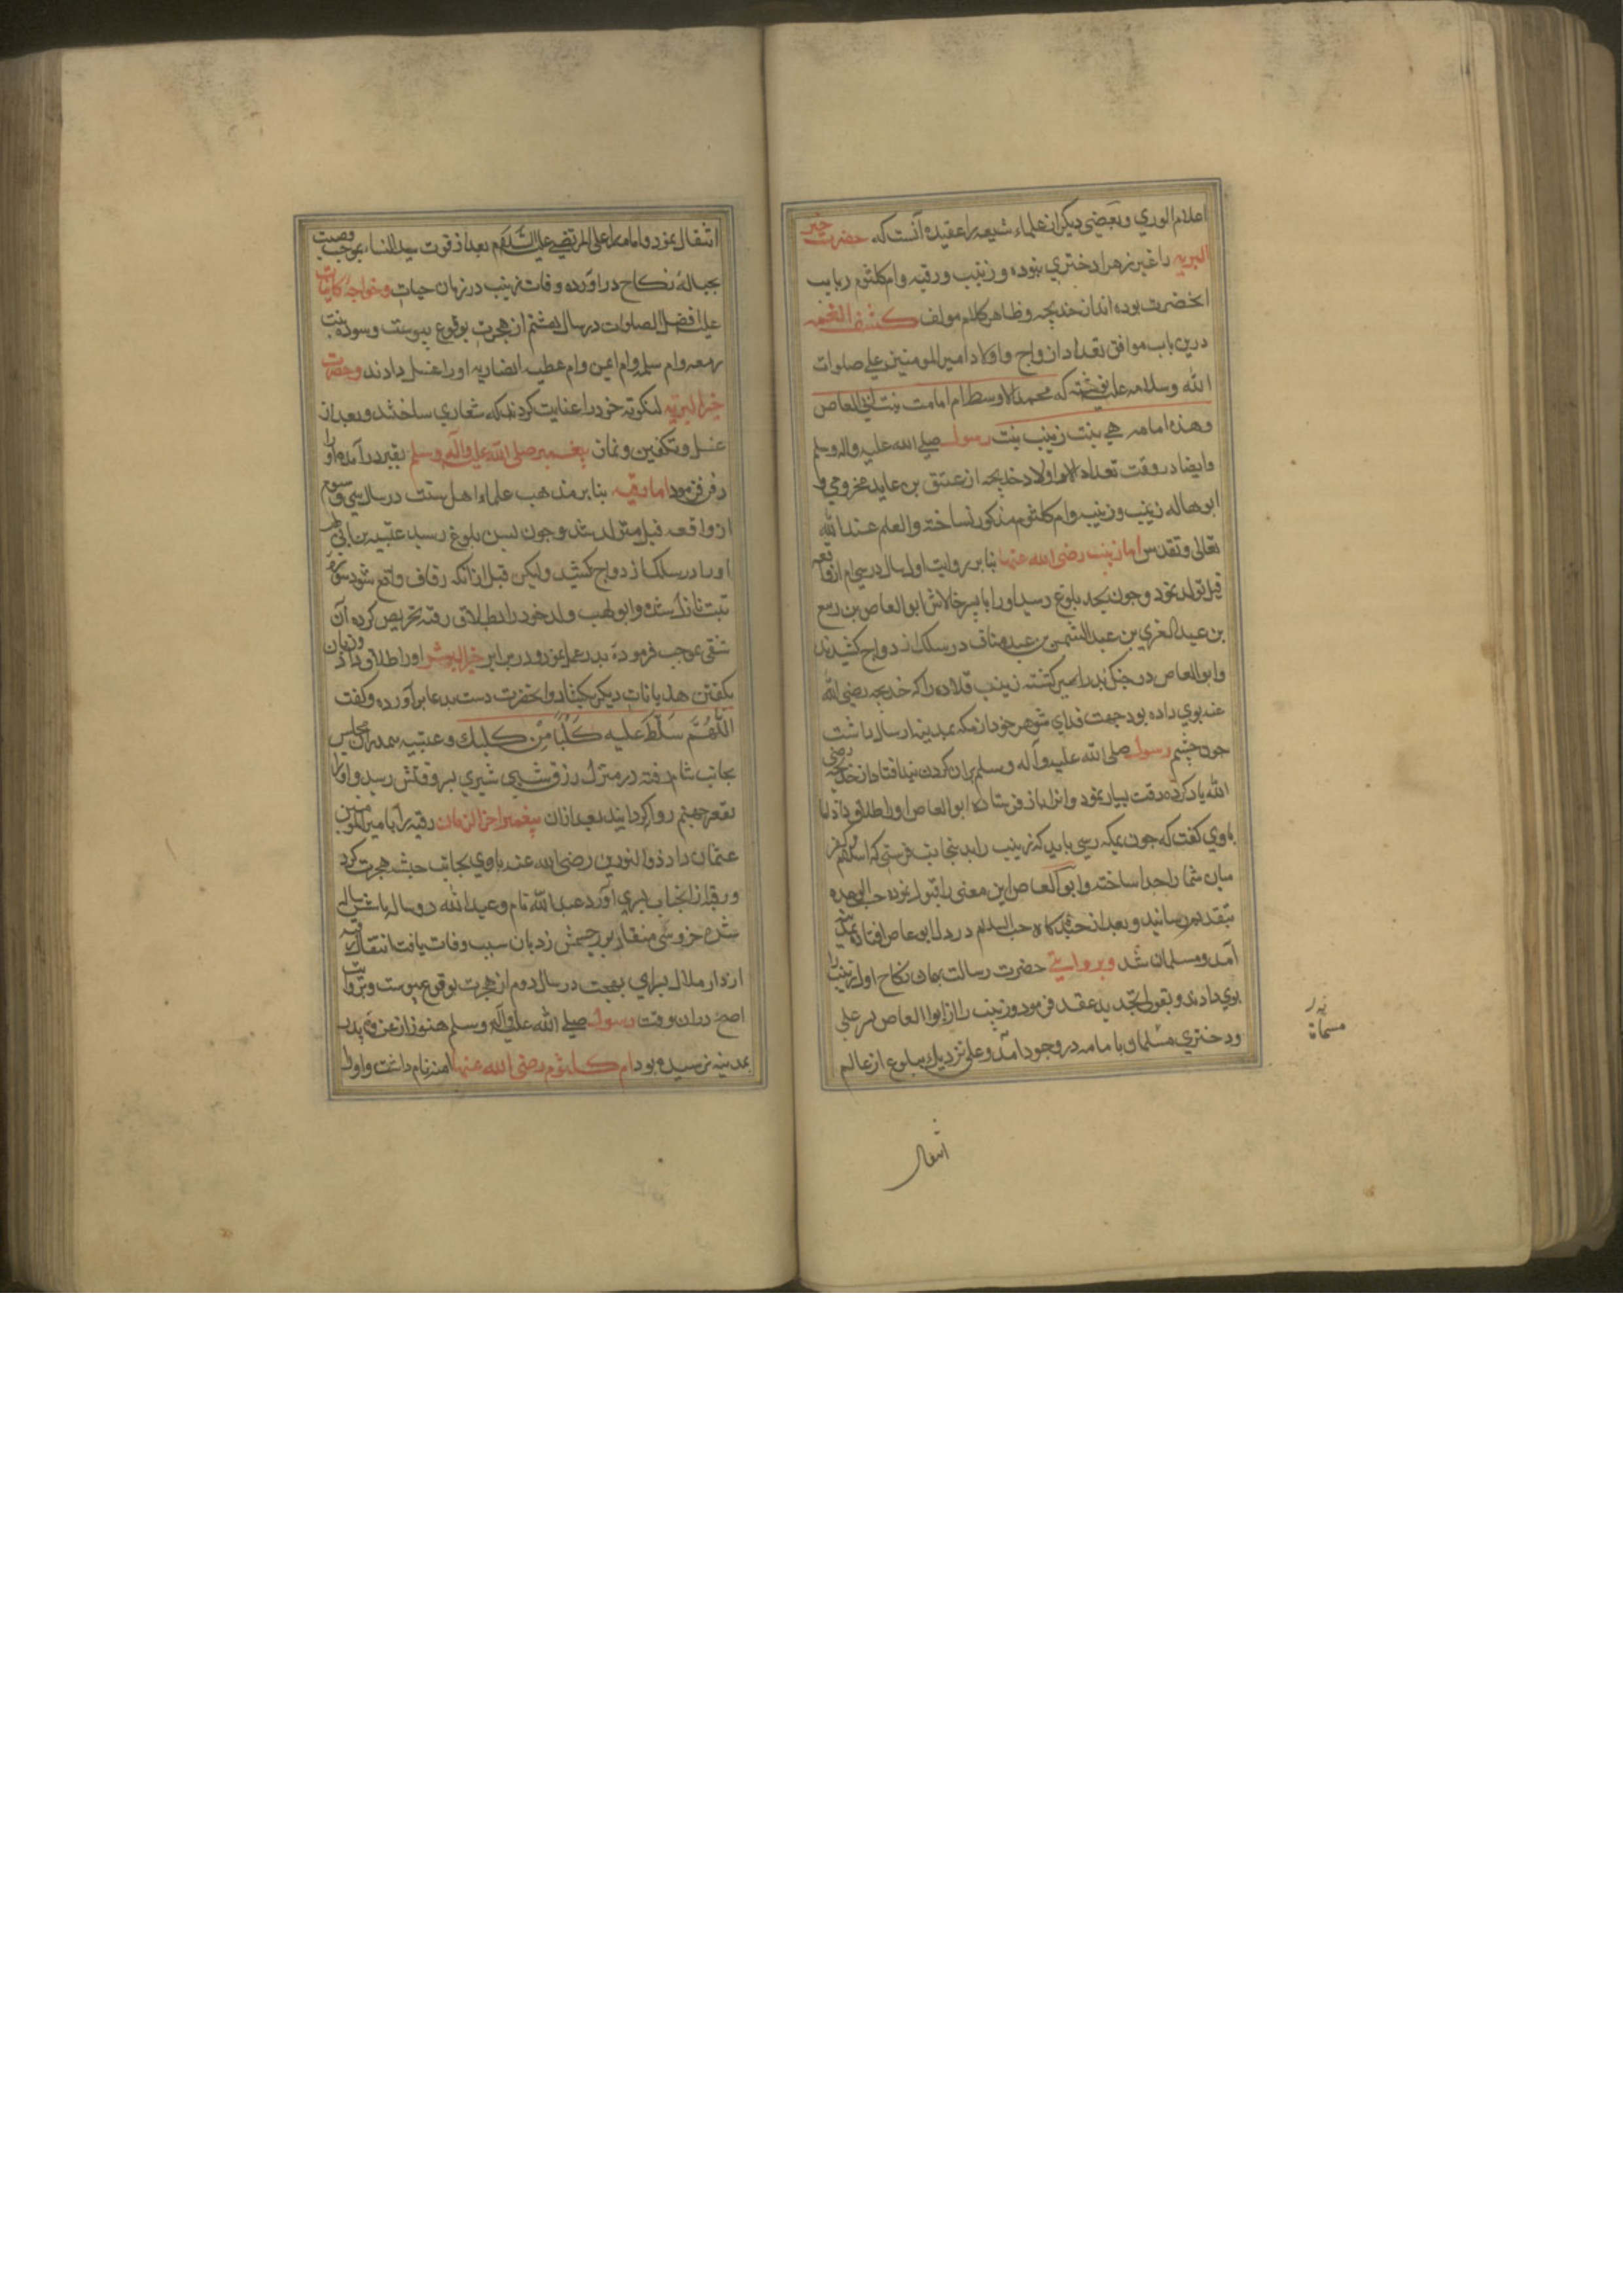 اعلام الوري وبعضی دیکر از علماء شیعه را عقیده آنست که حضرت خیر
البریه را غیر زهرا دختری نبوده و زینب و رقیه وام کلثوم ربایب
انحضرت بوده اند از خدیجه وظاهر کلام مولف کشف الغمه
درین باب موافق تعداد ازواج واولاد امیر المومنین علی صلوات
الله وسلامه علیه نوشته که محمد الاوسط ام امامت بنت ابی العاص
وهذه امامه هی بنت زینب بنت رسول صلی الله علیه واله وسلم
وایضا در وقت تعداد اولاد خدیجه از عتیق بن عاید مخزومی و
ابو هاله زینب ورقیه وام کلثوم مذکور نساخته والعلم عند الله
تعالی وتقدس اما زینب رضی الله عنها بنا بر روایت اول سال درسی ام از واقعه
فیل تولد نمود وچون بحد بلوغ رسید اورا با پسر خالاش ابو العاص بن ربیع
بن عبد العزی بن عبد الشمس بن عبد مناف در سلک ازدواج کشیدند
وابو العاص در جنک بدر اسیر کشته زینب قلاده را که خدیجه رضی الله
عنه بوي داده بود جهت فدای شوهر خود از مکه بمدینه ارسال داشت
چون چشم رسول صلی الله علیه وآله وسلم بران کردن بند افتاد از خدیجه رضی
الله یاد کرده رقت بسیار نمود وانرا باز فرستاده ابو العاص اورا طلاق داد اما
باوي کفت که چون بمکه رسی باید که زینب را بدینجانب فرستی که اسلام وکفر
میان شما را جدا ساخته وابو العاص این معنی را قبول نموده حسب الوعده
بتقدیم رسانید وبعد از حب اسلام در دل ابو عاص افتاده بمدینه
آمد ومسلمان شد وبروایتی حضرت رسالت بهمان نکاح اول زینب را
بوي دادند وبقولی تجدید عقد فرمود وزینب را از ابو العاص پسر علی
ودختري مسماة با مامه در وجود آمد وعلی نزدیک ببلوغ از عالم
انتقال
مسماة
انتقال نمود وامامه را علی المرتضی علیه السلام بعد از فوت سیدالنساء بموجب وصیت
بحبالهٔ نکاح در آورده وفات زینب در زمان حیات وخواجه کاینات
علیه افضل الصلوات در سال هشتم از هجرت بوقوع پیوست وسوده بنت
زمعه وام سلمه وام ایمن وام عطیه انصاریه اورا غسل دادند وحضرت
خیر البریه لنکوته خود را عنایت کردند که شعاري ساختند وبعد از
غسل وتکفین ونماز پیغمبر صلی الله علیه وآله وسلم بقبر در آمده اورا
دفن فرمود اما رقیه بنا بر مذهب علماء اهل سنت در سال سی وسوم
از واقعه فیل متولد شد وچون بسن بلوغ رسید عتیبه بن ابی لهب
اورا در سلک ازدواج کشید ولیکن قبل ازانکه زفاف واقع شود سوره
تبت نازل شد وابو لهب ولد خود را بطلاق رقیه تحریص کرده آن
شقی بموجب فرمودهٔ پدر عمل نمود ودر برابر خیر البشر اورا طلاق داد وزبان
بکفتن هذیانات دیکر بکشاد وانحضرت دست بدعا برآورده وکفت
اللهم سلط علیه کلبا من کلبك وعتیبه بعد ازان مجلس
بجانب شام رفته در منزل زرق شبی شیري بسر وقتش رسید واورا
بقعر جهنم روا کردانیده بعد ازان پیغمبر اخر الزمان رقیه را با امیر المومنین
عثمان داد ذو النورین رضی الله عنه باوي بجانب حبشه هجرت کرد
ورقیه از انجناب پسري آورد عبد الله نام وعبد الله دو ساله یا شش ساله
شده خروسی منقار بر چشمش زد بان سبب وفات یافت انتقال رقیه
از دار ملال بسراي بهجت در سال دوم از هجرت بوقوع پیوست وبروایت
اصح دران وقت رسول صلی الله علیه وآله وسلم هنوز از غزوه بدر
بمدینه نرسیده بود ام کلثوم رضی الله عنها امنه نام داشت واورا